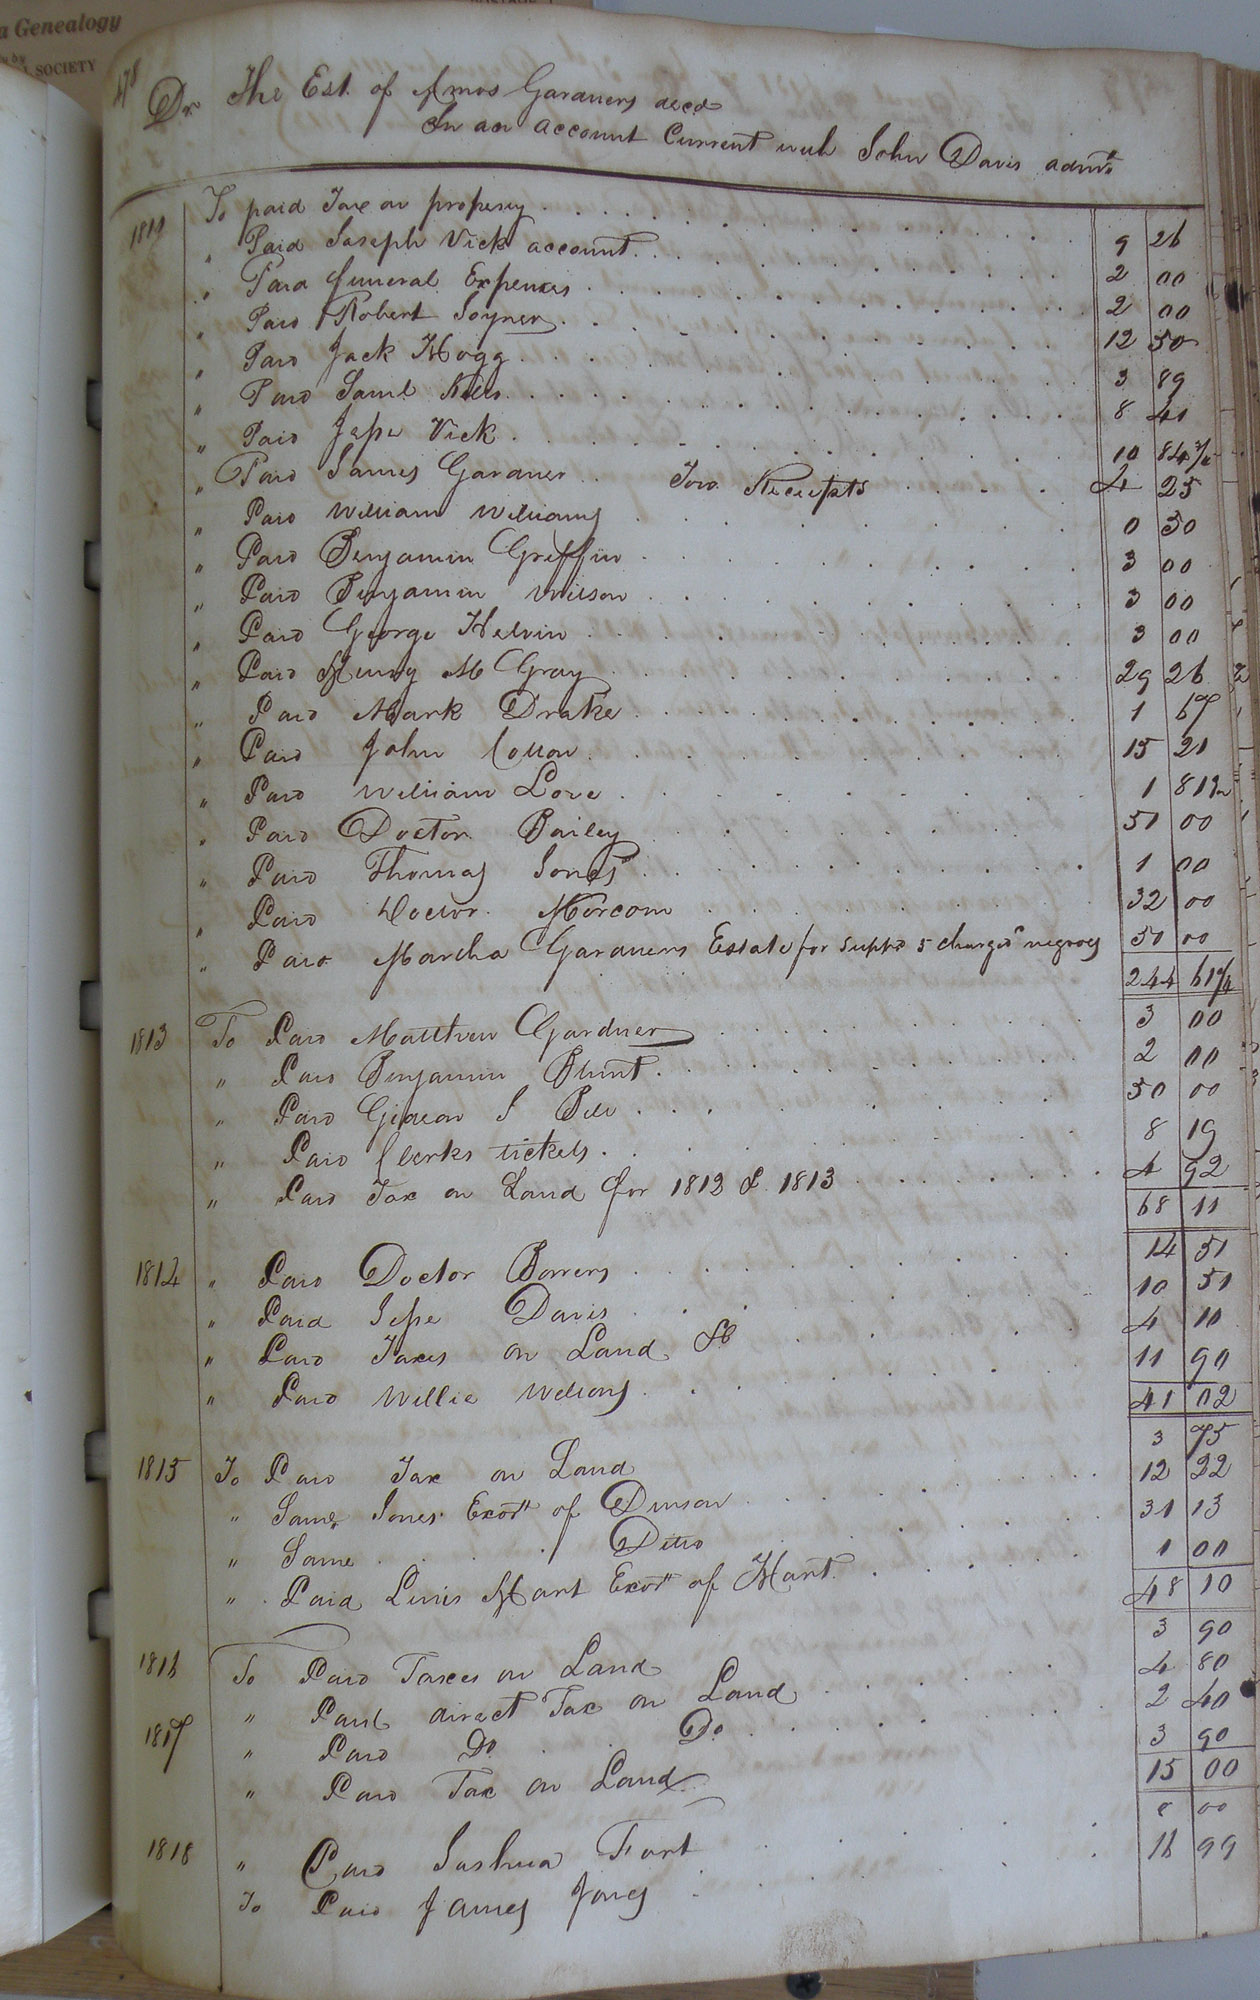 a Genealogy
SOCIETY
478
Dr. The Est. of Amos Gardners decd
In an account Current with John Davis admr
1811 To paid Tax on property 9 26
" Paid Joseph Vick account 2 00
" Paid funeral Expenses 2 00
" Paid Robert Joyner 12 50
" Paid Jack Hogg 3 89
" Paid Saml 8 41
" Paid Jesse Vick 10 84 3/4
" Paid James Gardner Two Receipts 4 25
" Paid William Williams 0 50
" Paid Benjamin Griffin 3 00
" Paid Benjamin Wilson 3 00
" Paid George Helvin 3 00
" Paid Henry M Gray 29 26
" Paid Mark Drake 1 67
" Paid John Cotton 15 21
" Paid William Love 1 81 1/2
" Paid Doctor Bailey 51 00
" Paid Thomas Jones 1 00
" Paid Doctor Morcom 32 00
" Paid Martha Gardners Estate for suppt 5 charged negroes 50 00
244 61 1/4
1813 To Paid Matthew Gardner 3 00
" Paid Benjamin Blunt 2 00
" Paid Gideon J Bell 50 00
" Paid Clerks tickets 8 19
" Paid Tax on Land for 1812 & 1813 4 92
68 11
1814 " Paid Doctor Borrers 14 51
" Paid Jesse Davis 10 51
" Paid Taxes on Land &c 4 10
" Paid Willie Wellons 11 90
41 02
1815 To Paid Tax on Land 3 75
" James Jones Exor of Denson 12 22
" Same Ditto 31 13
" Paid Lewis Hart Exor of Hart 1 00
48 10
1816 To Paid Taxes on Land 3 90
" Paid direct Tax on Land 4 80
1817 " Paid Do Do 2 40
" Paid Tax on Land 3 90
15 00
1818 " Paid Joshua Fort 8 00
To Paid James Jones 16 99